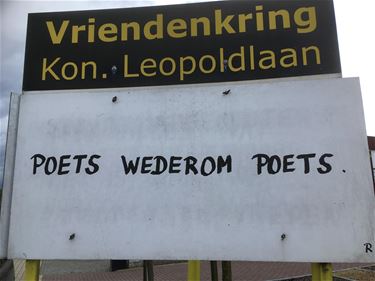 Vriendenkring
Kon. Leopoldlaan
POETS WEDEROM POETS.
R